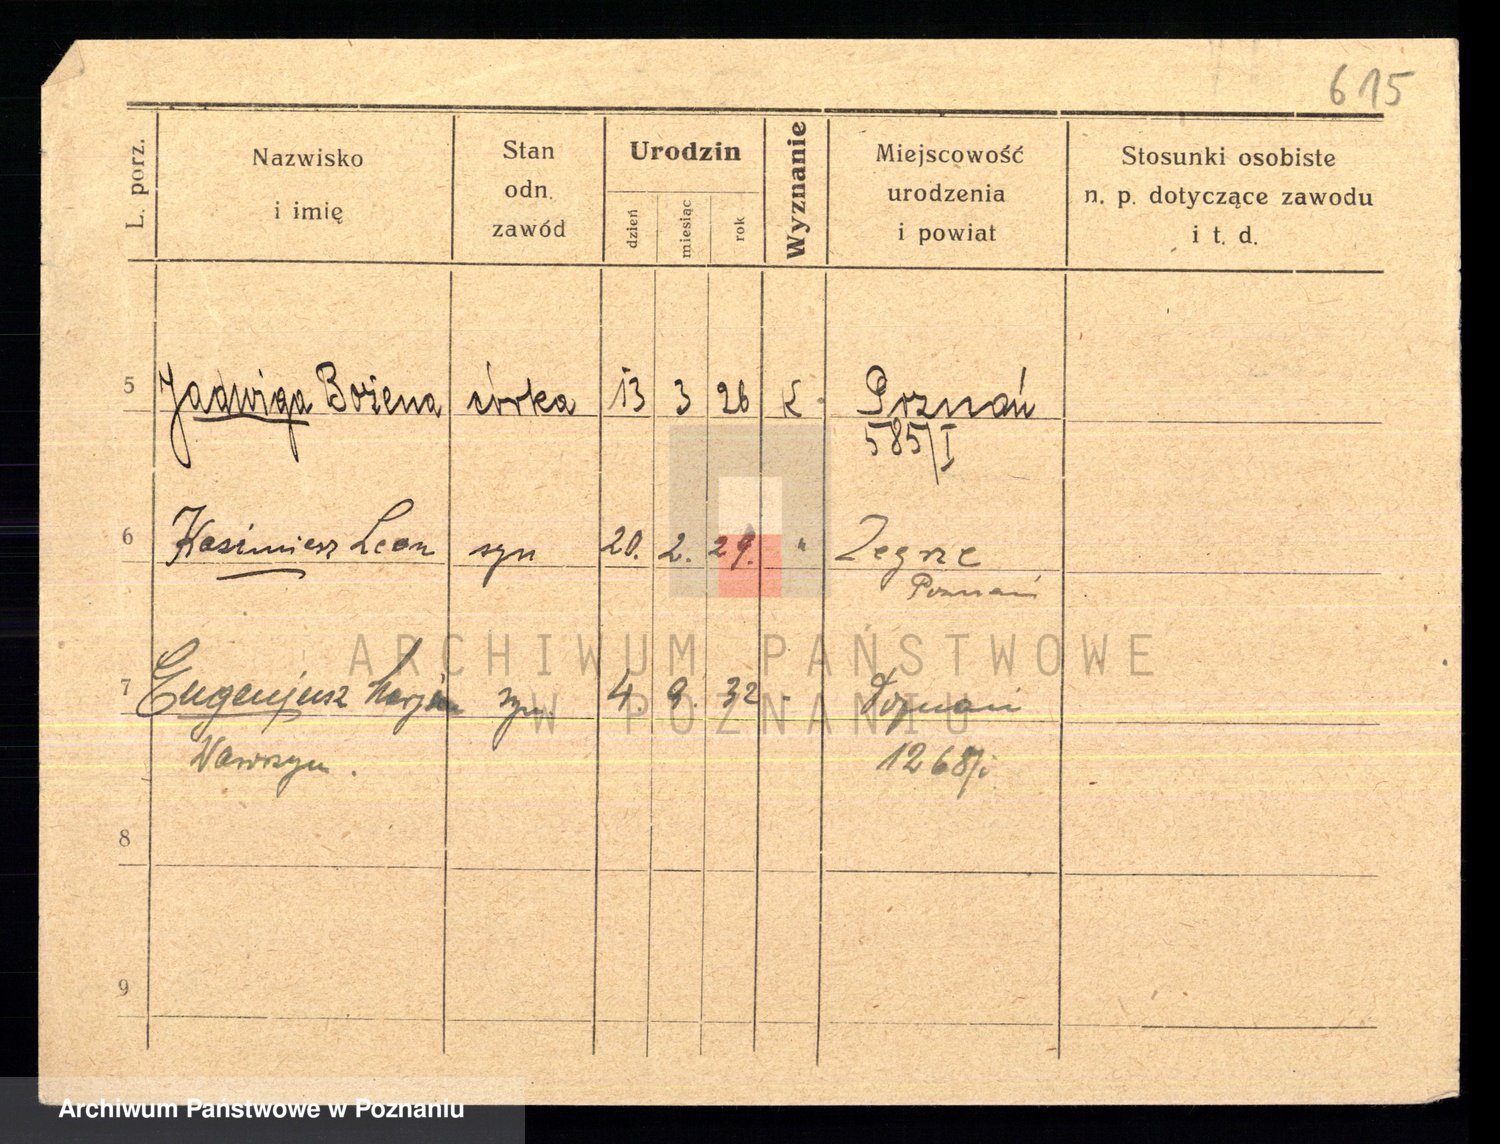 615
L. porz.
Nazwisko
i imię
Stan
odn.
zawód
Urodzin
dzień
miesiąc
rok
Wyznanie
Miejscowość
urodzenia
i powiat
Stosunki osobiste
n. p. dotyczące zawodu
i t. d.
5 Jadwiga Bożena córka 13 3 26 k Poznań
585/I
6 Kasimiesz Leon syn 20. 2. 29. " Zegrze
Poznań
7 Eugenjusz Marjan syn 4. 9. 32 - Poznań
Wawrzyn.
1268/i
8
9
ARCHIWUM PAŃSTWOWE
W POZNANIU
Archiwum Państwowe w Poznaniu